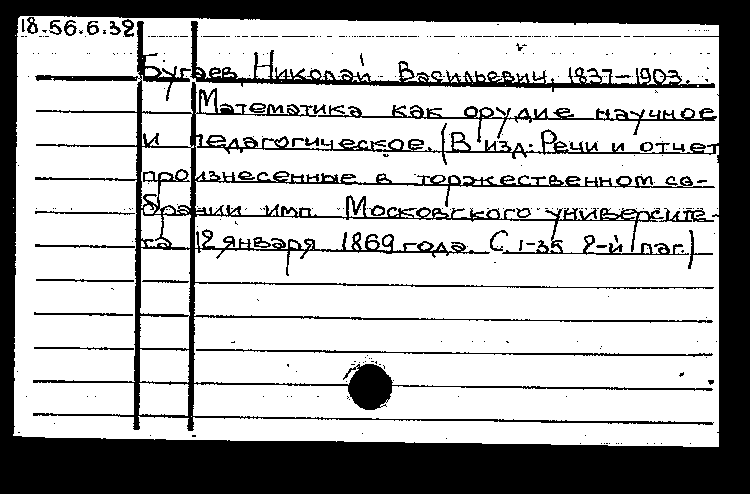 18.56.6.32
Бугаев, Николай Васильевич, 1837-1903.
Математика как орудие научное
и педагогическое. (В изд: Речи и отчет
произнесенные в торжественном со-
брании имп. Московского университе-
та 12 января 1869 года. С. 1-35 2-й паг.)